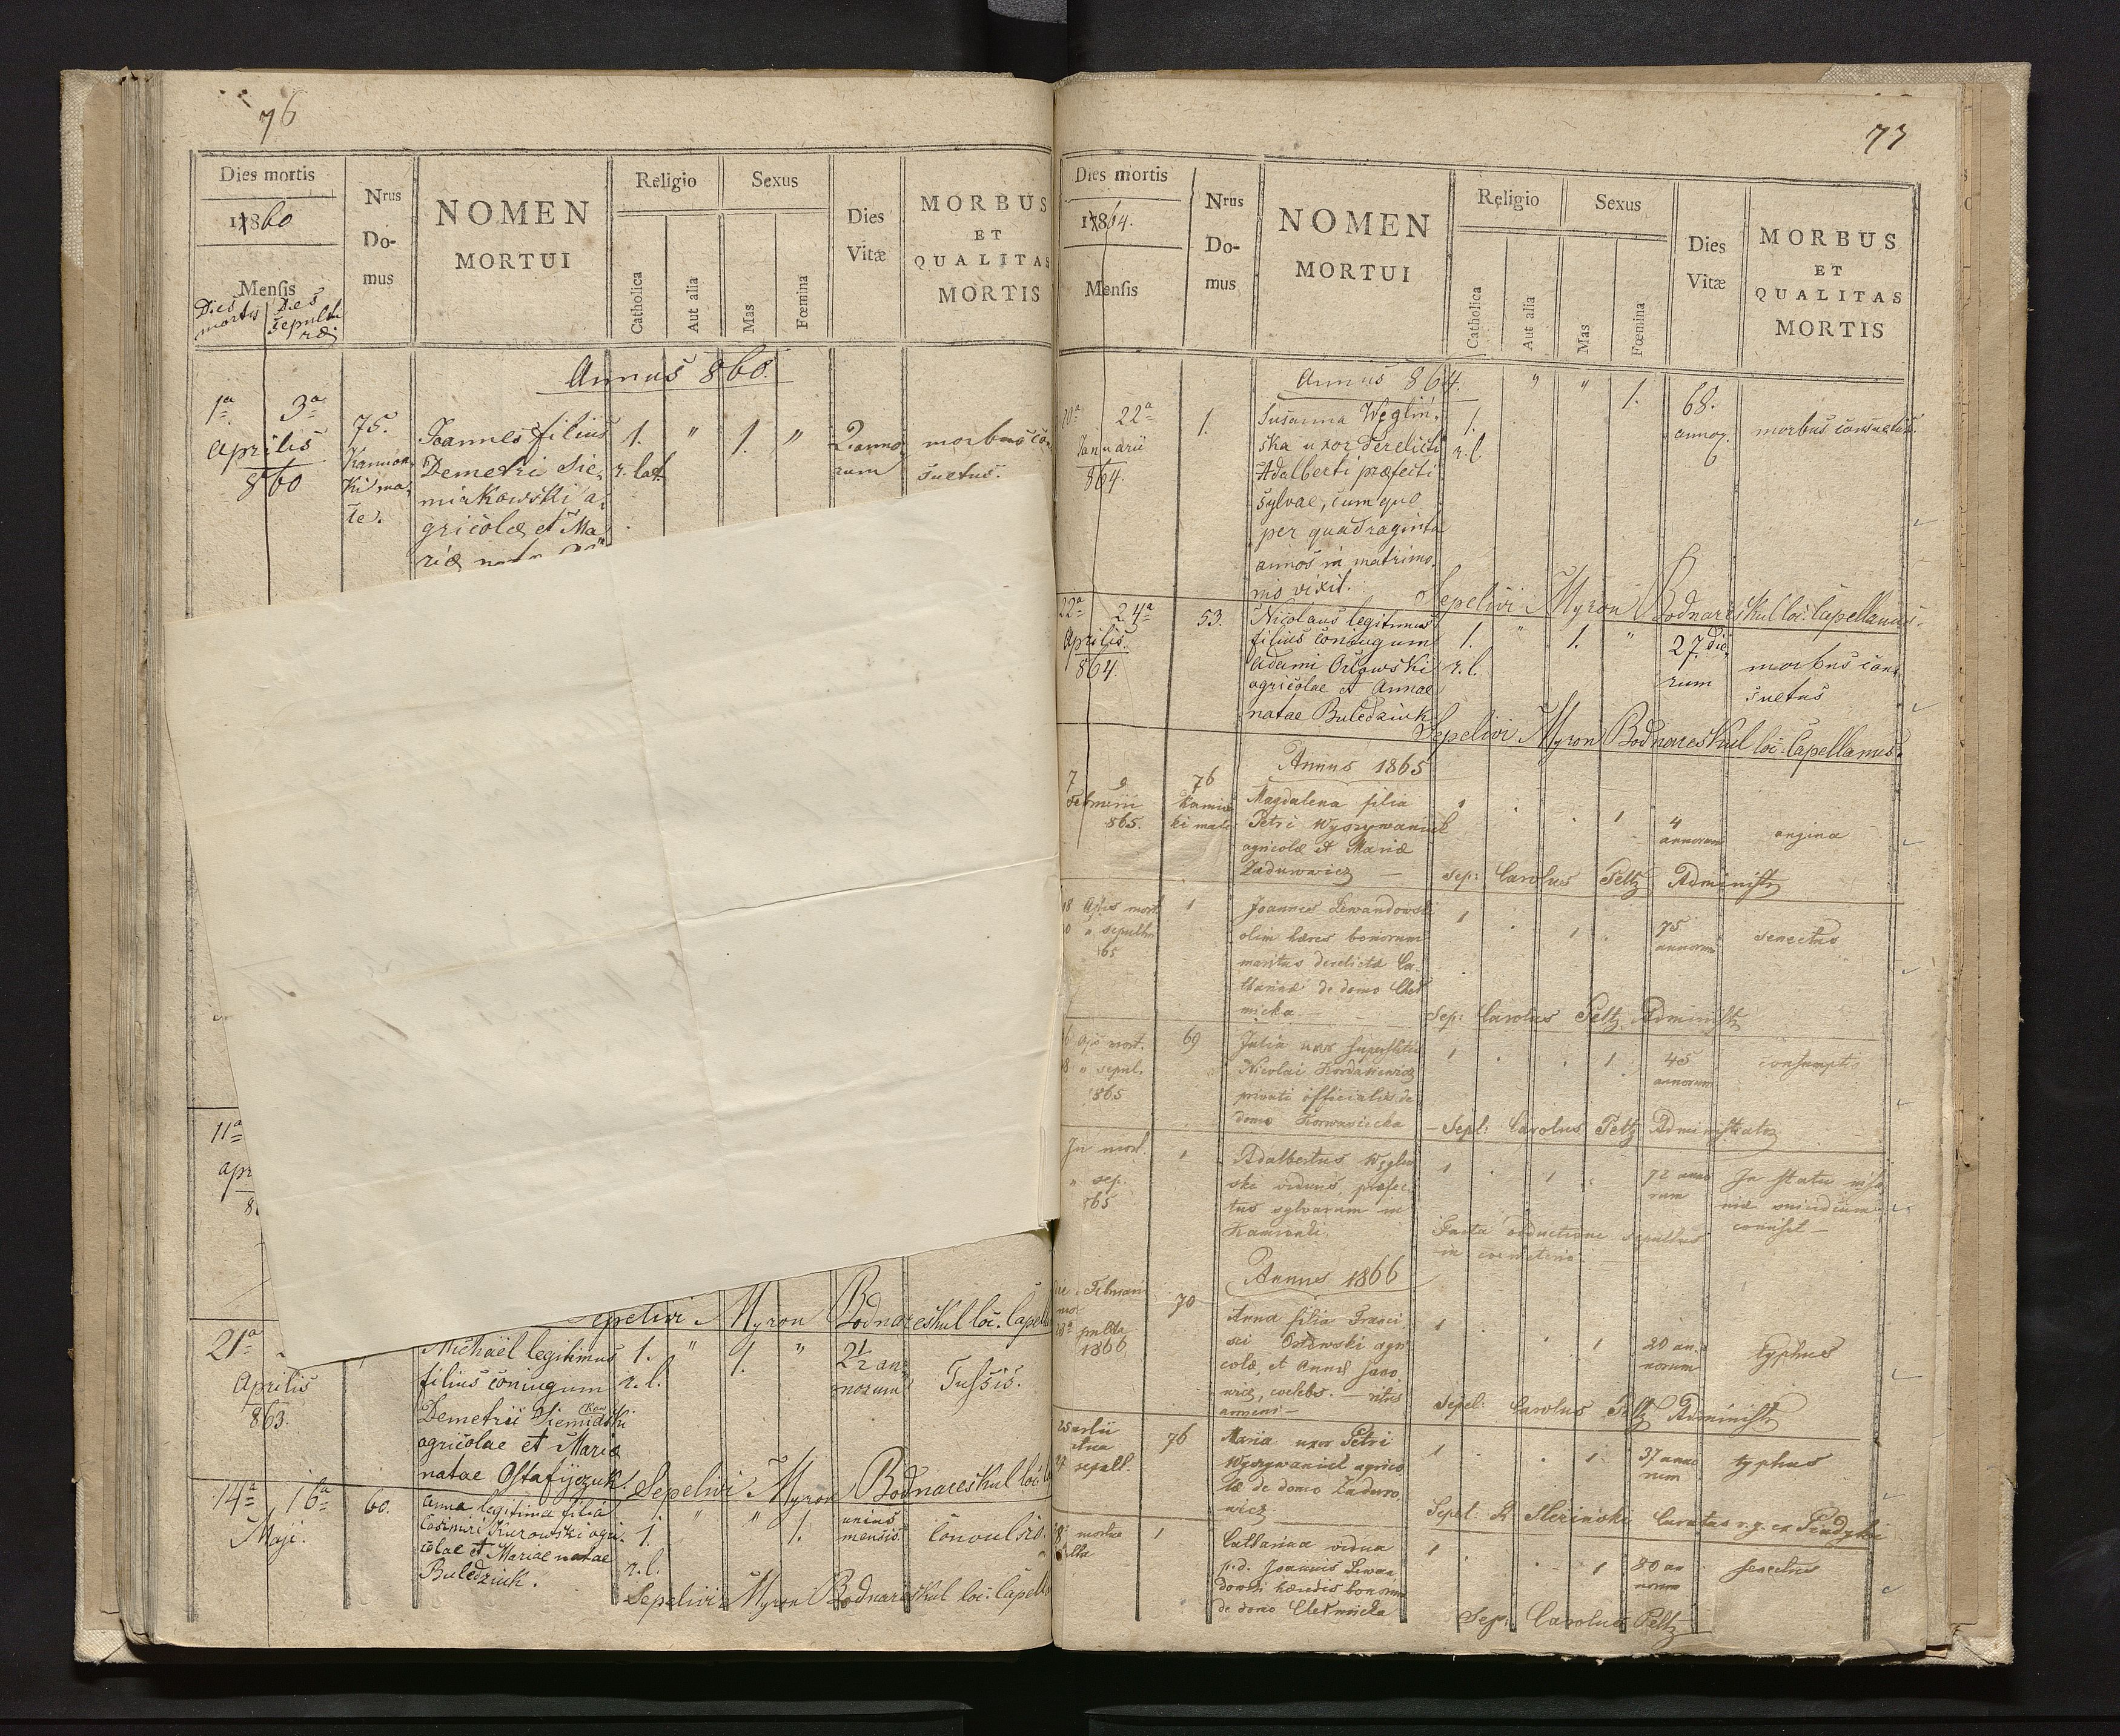 76
Dies mortis
1860
Mensis
Dies mortis
Dies sepultu
ræ
Nrus
Do-
mus
NOMEN
MORTUI
Religio
Catholica
Aut alia
Sexus
Mas
Fœmina
Dies
Vitæ
MORBUS
ET
QUALITAS
MORTIS
Annus 860.
1ª 3ª
Aprilis
860
75.
Joannes filius
Demetri Sie-
miakowski a-
gricolæ et Ma-
riæ
1.
r. lat.
"
1.
"
2 anno
rum
morbus con
suetus.
11ª
apr
8
Sepelivi Myron Bodnareskul loc. Capell
21ª
Aprilis
863.
Michaël legitimus
filius coniugum
Demetrii Siemiaski
kow
agricolae et Maria
natae Ostafijczuk.
1.
r.l.
"
1.
"
2½ an
norum
Tussis.
Sepelivi Myron Bodnareskul loc.
14ª 16ª
Maji.
60.
Anna legitima filia
Casimiri Kurowski agri
colae et Mariae natae
Buledziuk.
1.
r.l.
"
"
1.
unius
mensis
Convulsio.
Sepelivi Myron Bodnareskul loc. Capell
77
Dies mortis
1864.
Mensis
Nrus
Do-
mus
NOMEN
MORTUI
Religio
Catholica
Aut alia
Sexus
Mas
Fœmina
Dies
Vitæ
MORBUS
ET
QUALITAS
MORTIS
Annus 864.
22ª
Januarii
864.
1.
Susanna Węgliń-
ska uxor derelicti
Adalberti præfecti
sylvae, cum quo
per quadraginta
annos in matrimo-
nio vixit.
1.
r.l.
"
"
1.
68.
annor.
morbus consuetus.
Sepelivi Myron Bodnareskul loc. Capellanus.
22ª 24ª
Aprilis.
864.
53.
Nicolaus legitimus
filius coniugum
Adami Orlowski
agricolae et Annae
natae Buledziuk
1.
r.l.
"
1.
"
27 die
rum
morbus con
suetus
Sepelivi Myron Bodnareskul loc. Capellanus.
Annus 1865
7 9
Februarii
865.
76
Magdalena filia
Petri Wyszywaniuk
agricolæ et Mariæ
Zadurowicz
1
4
annorum
angina
Sep: Carolus Peltz Administr
mort.
sepultu
65
1
Joannes Lewandowski
olim hæres bonorum
maritus derelictæ Ca-
tharinæ de domo Cheł
micka
1
1
75
annorum
senectus
Sep: Carolus Peltz Administr
mort.
sepul.
865
69
Julia uxor superstitis
Nicolai
privati officialis de
domo
1
1
45
annorum
consumptio
Sepl: Carolus Peltz Administrator
mort.
" sep.
865
1
Adalbertus Węgliń
ski viduus, præfec-
tus sylvarum in
Kamionki.
1
1
72 anno
rum
In statu
Facta obductione sepultus
in coemeterio
Annus 1866
Februarii
1866
70
Anna filia Franci
sci Ostrowski agri
colæ, et Annæ
1
1
20 an
norum
typhus
Sepel: Carolus Peltz Administr
25
27 sepult.
76
Maria uxor Petri
Wyszywaniuk agrico
læ de domo Zaduro
wicz
1
1
37 anno
rum
typhus
1
Catharina vidua
p.d. Joannis Lewan
dowski hæredis bonorum
de domo Chełmicka
1
1
80 an
norum
senectus
Sep: Carolus Peltz